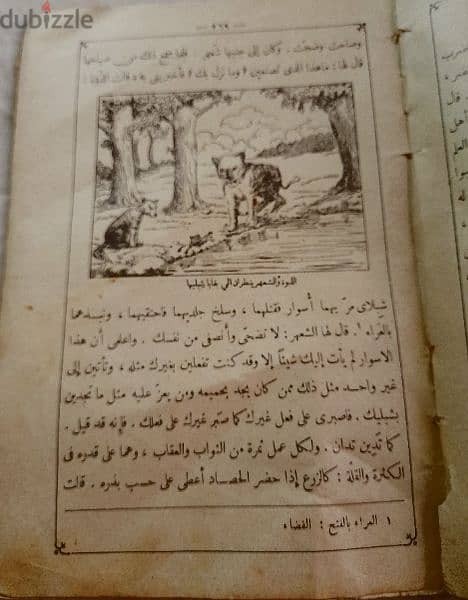 dubizzle
— ٢٦٩ —
وصاحت وضجّت . وكان إلى جنبها شعهر . فلما سمع ذلك من صياحها
قال لها : ماهذا الذى تصنعين ؟ وما نزل بك ؟ فأخبرينى به . قالت اللبؤة :
اللبوة والشعهر ينظران إلى بقايا شبليها
شبلاى مرّ بهما أسوار فقتلهما ، وسلخ جلديهما فاحتقبهما ، ونبذهما
بالعراء ١ . قال لها الشعهر : لا تضجّى وأنصفى من نفسك . واعلمى أن هذا
الاسوار لم يأت إليك شيئاً إلا وقد كنت تفعلين بغيرك مثله ، وتأتين إلى
غير واحد مثل ذلك ممن كان يجد بحميمه ومن يعزّ عليه مثل ما تجدين
بشبليك . فاصبرى على فعل غيرك كما صبر غيرك على فعلك . فإنه قد قيل .
كما تَدين تدان . ولكل عمل ثمرة من الثواب والعقاب ، وهما على قدره فى
الكثرة والقلّة : كالزرع إذا حضر الحصاد أعطى على حسب بذره . قالت
١ العراء بالفتح : الفضاء